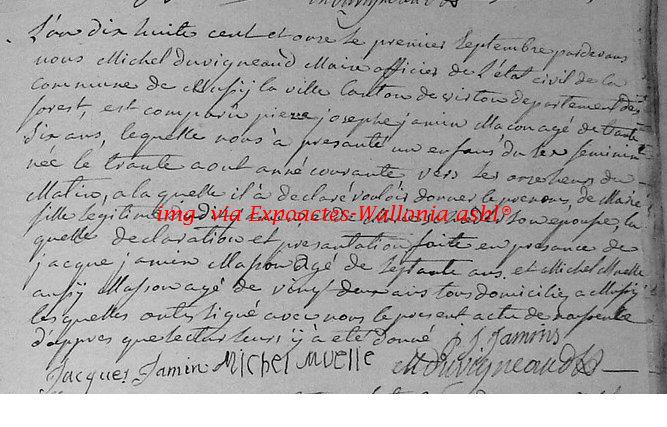 L'an dix huite cent et onze le premier Septembre pardevans
nous Michel duvigneaud Maire officier de L'état civil de la
commune de Mussy la ville Canton de virton departement des
forest, est comparu pierre josephe jamin Macon agé de trante
Six ans, lequelle nous à presanté un enfans du sex feminin
née le trante aout année courante vers les onze heurs du
Matin, a la quelle il à declaré vouloir donner le prenons de Marie
fille legitime img via Expoactes-Wallonia asbl® son epouse, la
quelle declaration et presantation faite en presance de
jacque jamin Masson agé de septante ans, et Michel Muelle
aussy Masson agé de vingt deux ans tous domicilies a Mussy
lesquelles onts signé avec nous le present acte de naissence
d'appres que lecture leurs y à eté donné
P J Jamins
Jacques Jamin Michel Muelle M duvigneaud